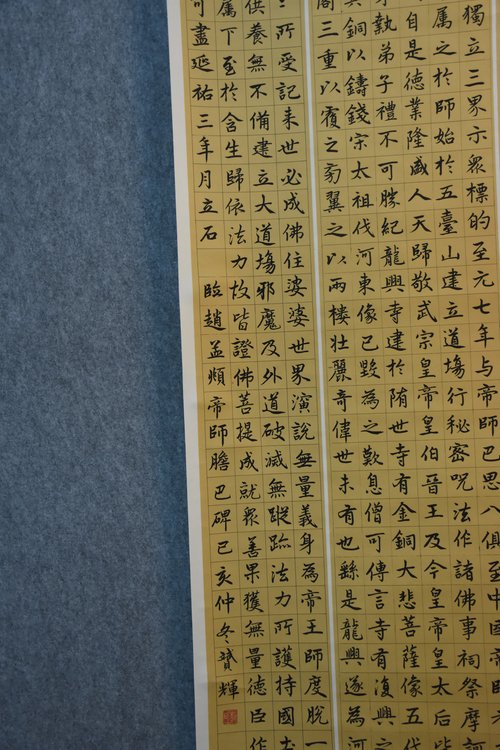 獨立三界示眾標的至元七年与帝師巴思八俱至中国帝師
属之於師始於五臺山建立道場行秘密咒法作諸佛事祠祭摩訶
自是德業隆盛人天歸敬武宗皇帝皇伯晉王及今皇帝皇太后皆
執弟子禮不可勝紀龍興寺建於隋世寺有金銅大悲菩薩像五代
銅以鑄錢宋太祖伐河東像已毀為之歎息僧可傳言寺有復興之
閣三重以覆之旁翼之以兩樓壯麗奇偉世未有也繇是龍興遂為河
所受記来世必成佛住娑婆世界演說無量義身為帝王師度脫一
供養無不備建立大道場邪魔及外道破滅無蹤跡法力所護持國土
属下至於含生歸依法力故皆證佛菩提成就眾善果獲無量德臣作
可盡延祐三年月立石 臨趙孟頫帝師膽巴碑己亥仲冬輝